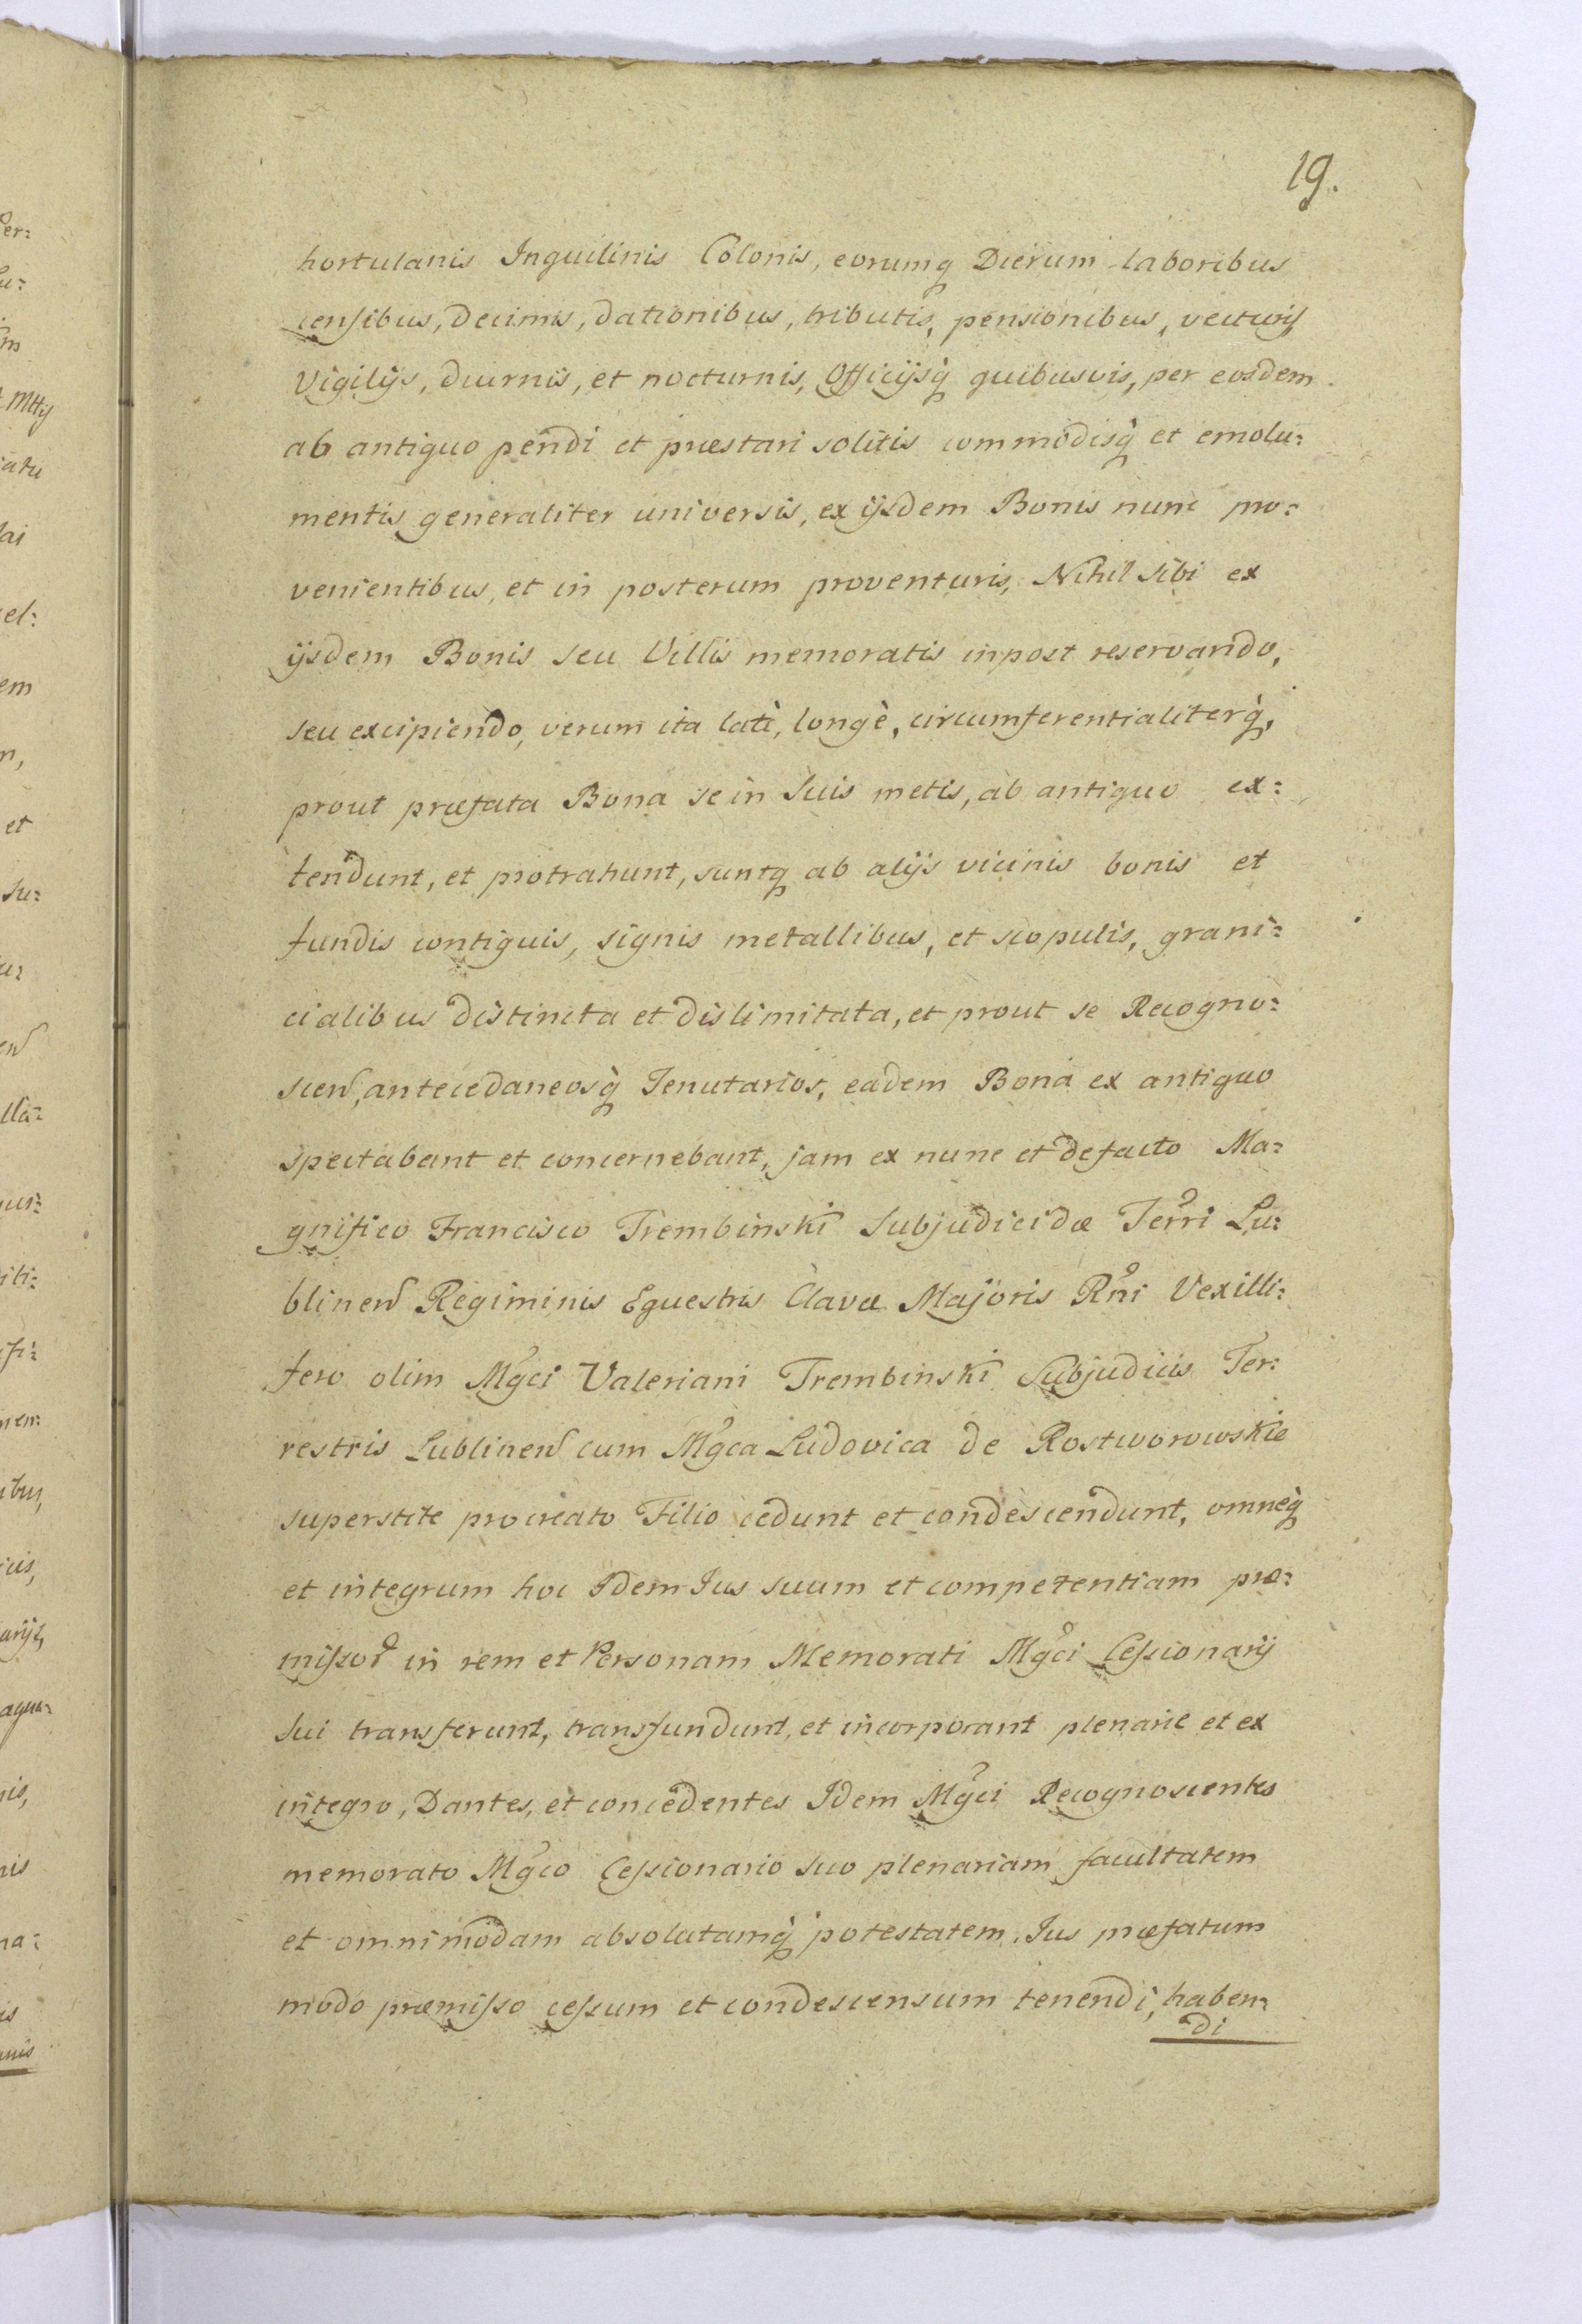 19.
hortulanis Inquilinis Colonis, eorumq Dierum laboribus
censibus, Decimis, dationibus, tributis, pensionibus, vecturis
Vigilijs, diurnis, et nocturnis, Officijsq quibusvis, per eosdem
ab antiquo pendi et præstari solitis commodisq et emolu:
mentis generaliter universis, ex ijsdem Bonis nunc pro:
venientibus, et in posterum proventuris, Nihil sibi ex
ijsdem Bonis seu Villis memoratis inpost reservando,
seu excipiendo, verum ita latè, longè, circumferentialiterq,
prout præfata Bona se in suis metis, ab antiquo ex:
tendunt, et protrahunt, suntq ab alijs vicinis bonis et
fundis contiguis, signis metallibus, et scopulis, grani:
cialibus distincta et dislimitata, et prout se Recogno:
scen, antecedaneosq Tenutarios, eadem Bona ex antiquo
spectabant et concernebant, jam ex nunc et defacto Ma:
gnifico Francisco Trembinski Subjudicidæ Terri Lu:
blinen Regiminis Equestris Clavæ Majoris Rni Vexilli:
fero olim Mgci Valeriani Trembinski Subjudicis Ter:
restris Lublinen cum Mgca Ludovica de Rostworowskie
superstite procreato Filio cedunt et condescendunt, omneq
et integrum hoc Idem Jus suum et competentiam præ:
missor in rem et Personam Memorati Mgci Cessionarij
sui transferunt, transfundunt, et incorporant plenarie et ex
integro, Dantes, et concedentes Idem Mgci Recognoscentes
memorato Mgco Cessionario suo plenariam facultatem
et omnimodam absolutamq potestatem, Jus præfatum
modo præmisso cessum et condescensum tenendi, haben:
di